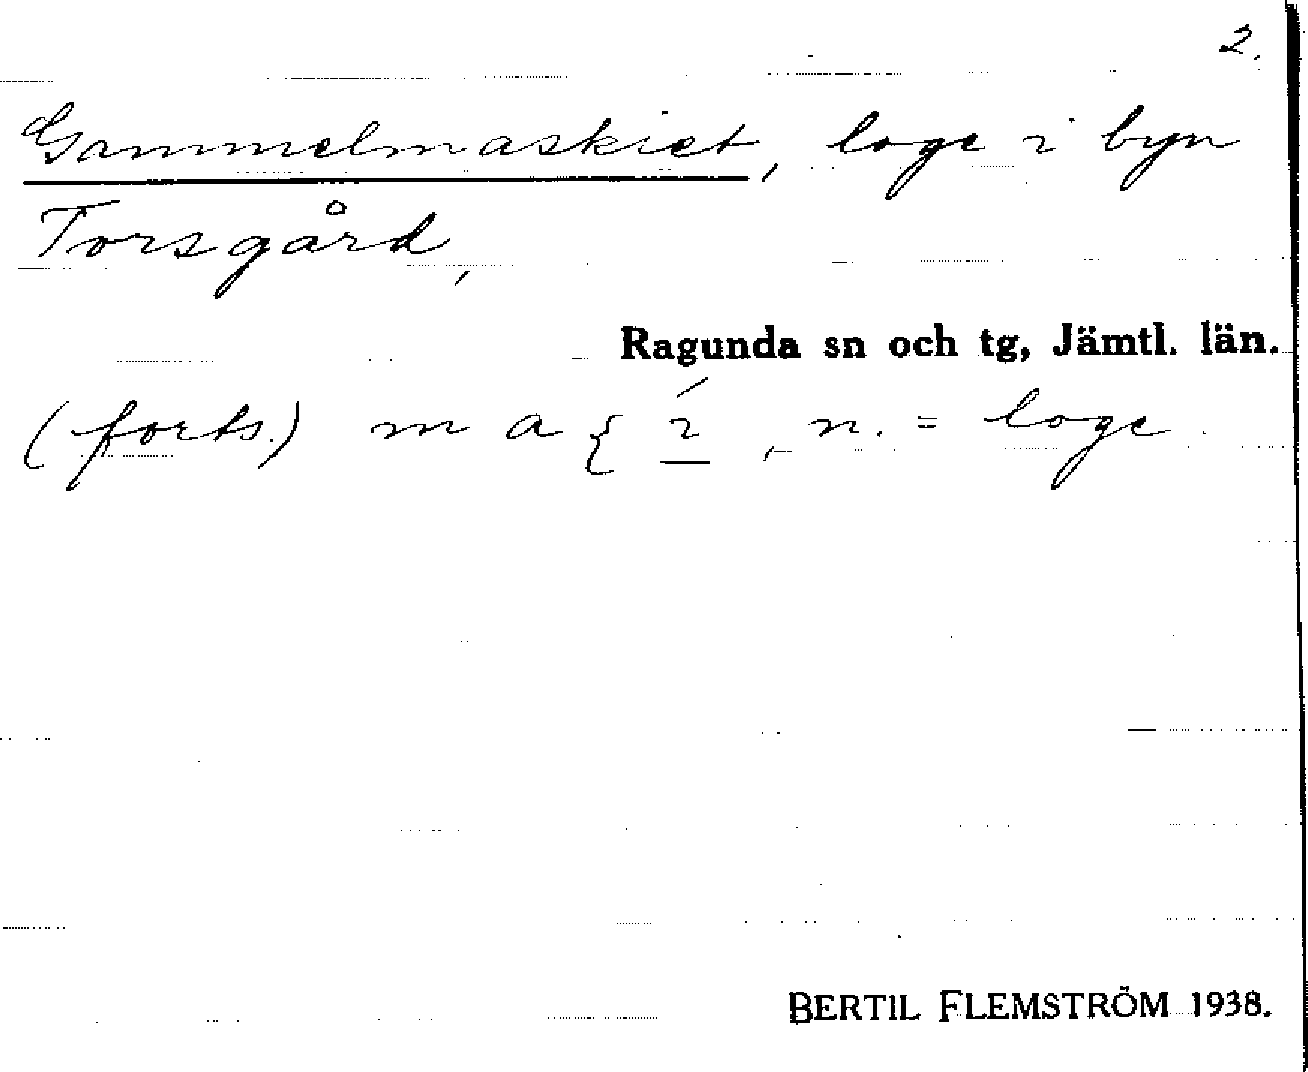 2.
Gammelmaskiet, loge i byn
Torsgård,
Ragunda sn och tg, Jämtl. län.
(forts.) m a { í , n. = loge.
BERTIL FLEMSTRÖM 1938.